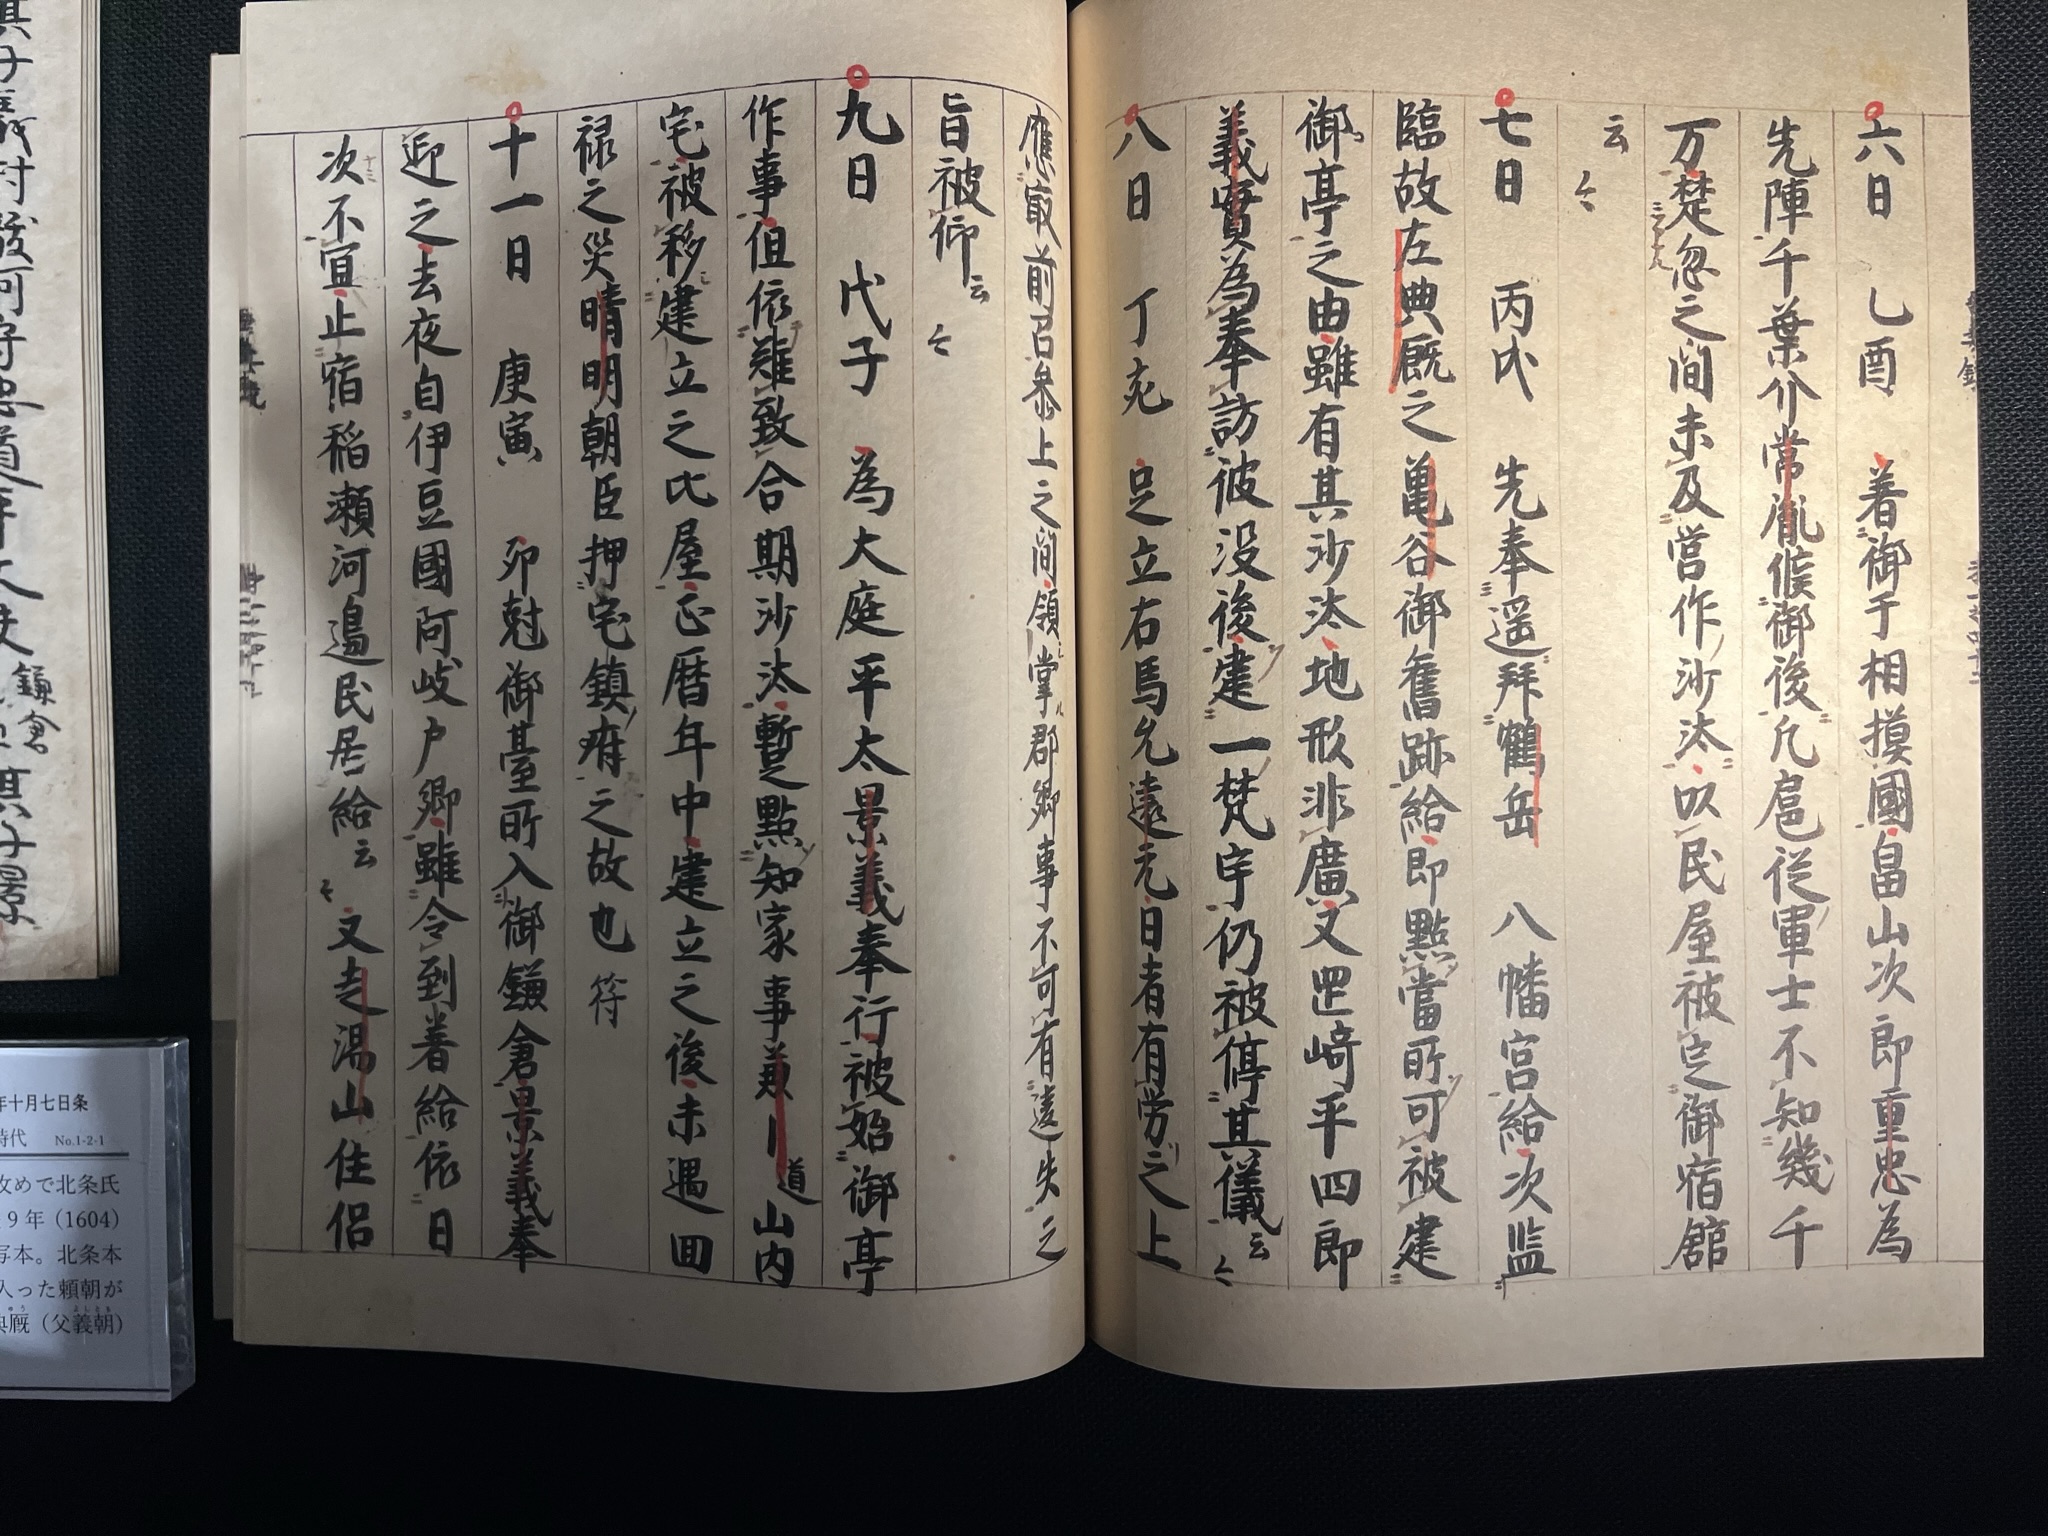 六日 乙酉 着御于相摸國畠山次郎重忠為
先陣千葉介常胤候御後凡扈従軍士不知幾千
万楚忽之間未及営作沙汰以民屋被定御宿舘
云々
七日 丙戌 先奉遥拝鶴岳 八幡宮給次監
臨故左典厩之亀谷御舊跡給即點當所可被建
御亭之由雖有其沙汰地形非廣又罡﨑平四郎
義實為奉訪彼没後建一梵宇仍被停其儀云々
八日 丁亥 足立右馬允遠元日者有労之上
應冣前召参上之間領掌郡郷事不可有違失之
旨被仰云々
九日 戊子 為大庭平太景義奉行被始御亭
作事但依難致合期沙汰暫點知家事兼〡道山内
宅被移建立之此屋正暦年中建立之後未遇回
禄之災晴明朝臣押宅鎮符之故也 符
十一日 庚寅 卯尅御臺所入御鎌倉景義奉
迎之去夜自伊豆國阿岐戸郷雖令到着給依日
次不宜止宿稲瀬河邉民居給云々又走湯山住侶
鎌倉
年十月七日条
時代 No.1-2-1
攻めで北条氏
9年（1604）
写本。北条本
入った頼朝が
典厩（父義朝）